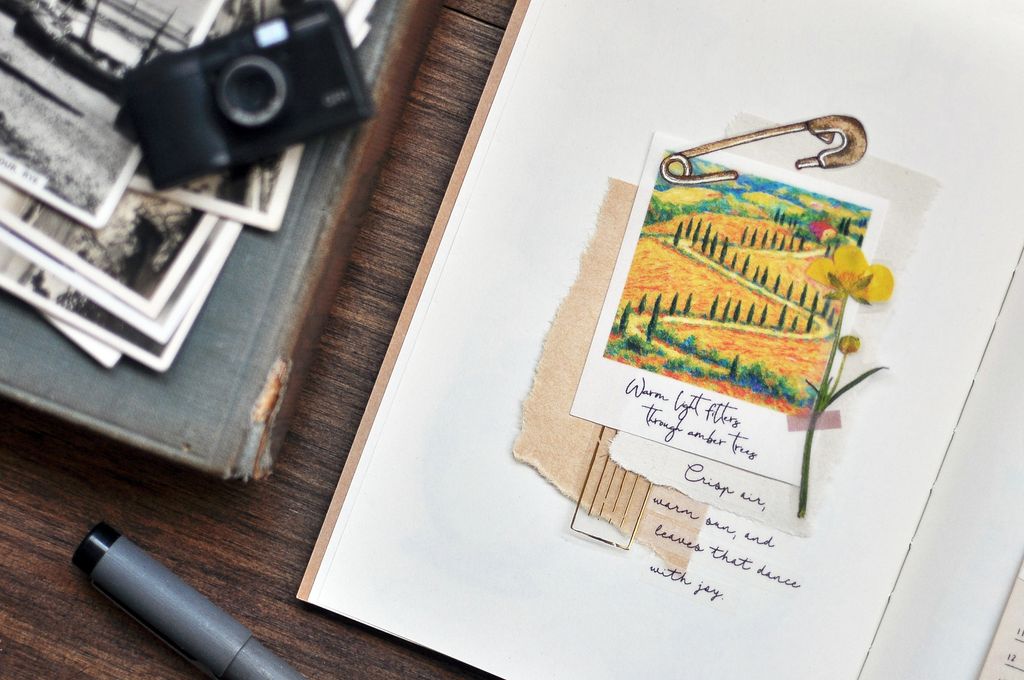 Warm light filters
through amber trees
Crisp air,
warm sun, and
leaves that dance
with joy.
11
12